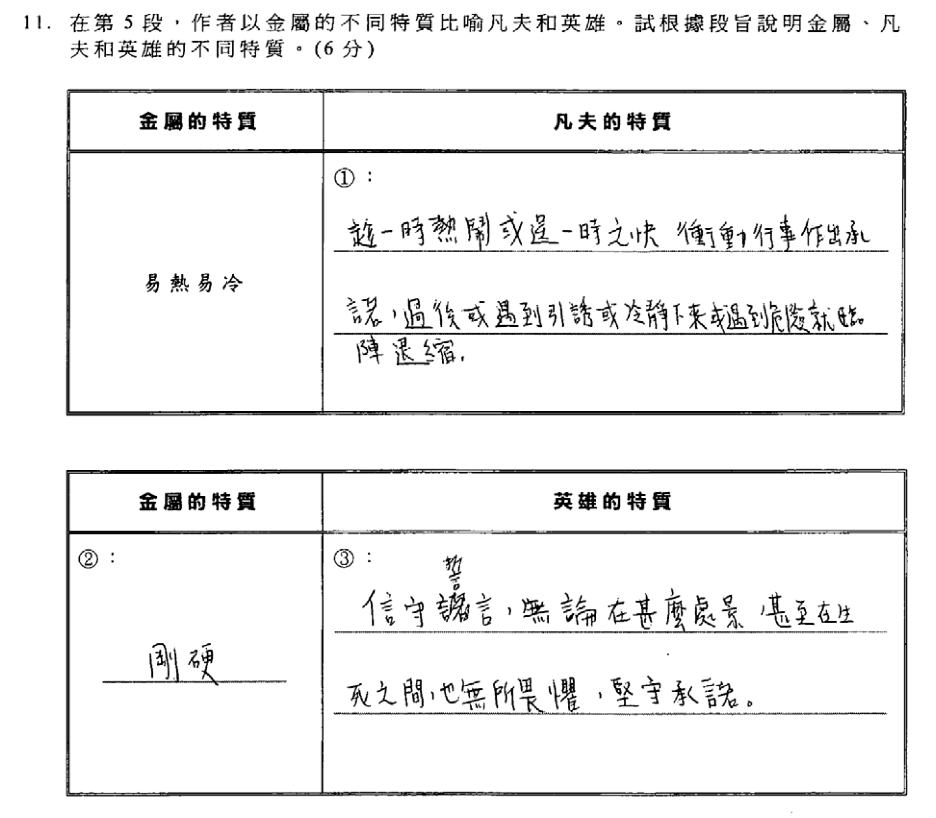 11. 在第 5 段，作者以金屬的不同特質比喻凡夫和英雄。試根據段旨說明金屬、凡
夫和英雄的不同特質。(6 分)
金屬的特質
凡夫的特質
易熱易冷
①：
趁一時熱鬧或逞一時之快 衝動行事作出承
諾，過後或遇到引誘或冷靜下來或遇到危險就臨
陣退縮.
金屬的特質
英雄的特質
②：
剛硬
③：
誓
信守言，無論在甚麼處景，甚至在生
死之間，也無所畏懼，堅守承諾。